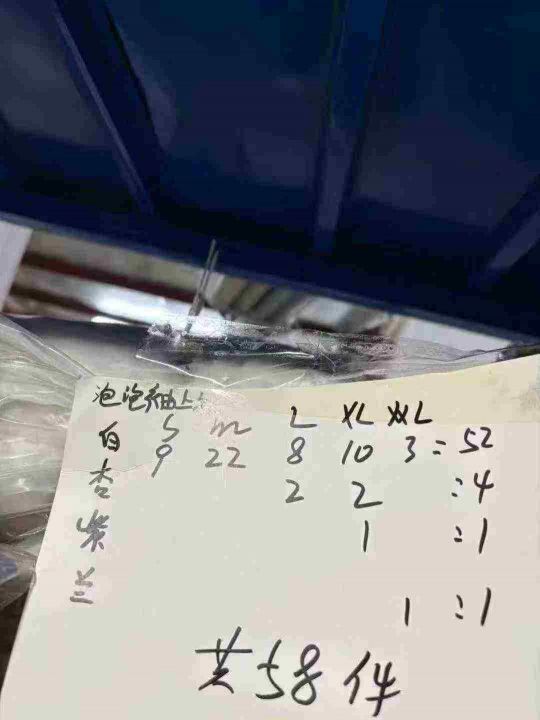 泡泡袖上
S m L XL XXL
白 9 22 8 10 3 = 52
杏 2 2 = 4
紫 1 = 1
兰 1 = 1
共58件